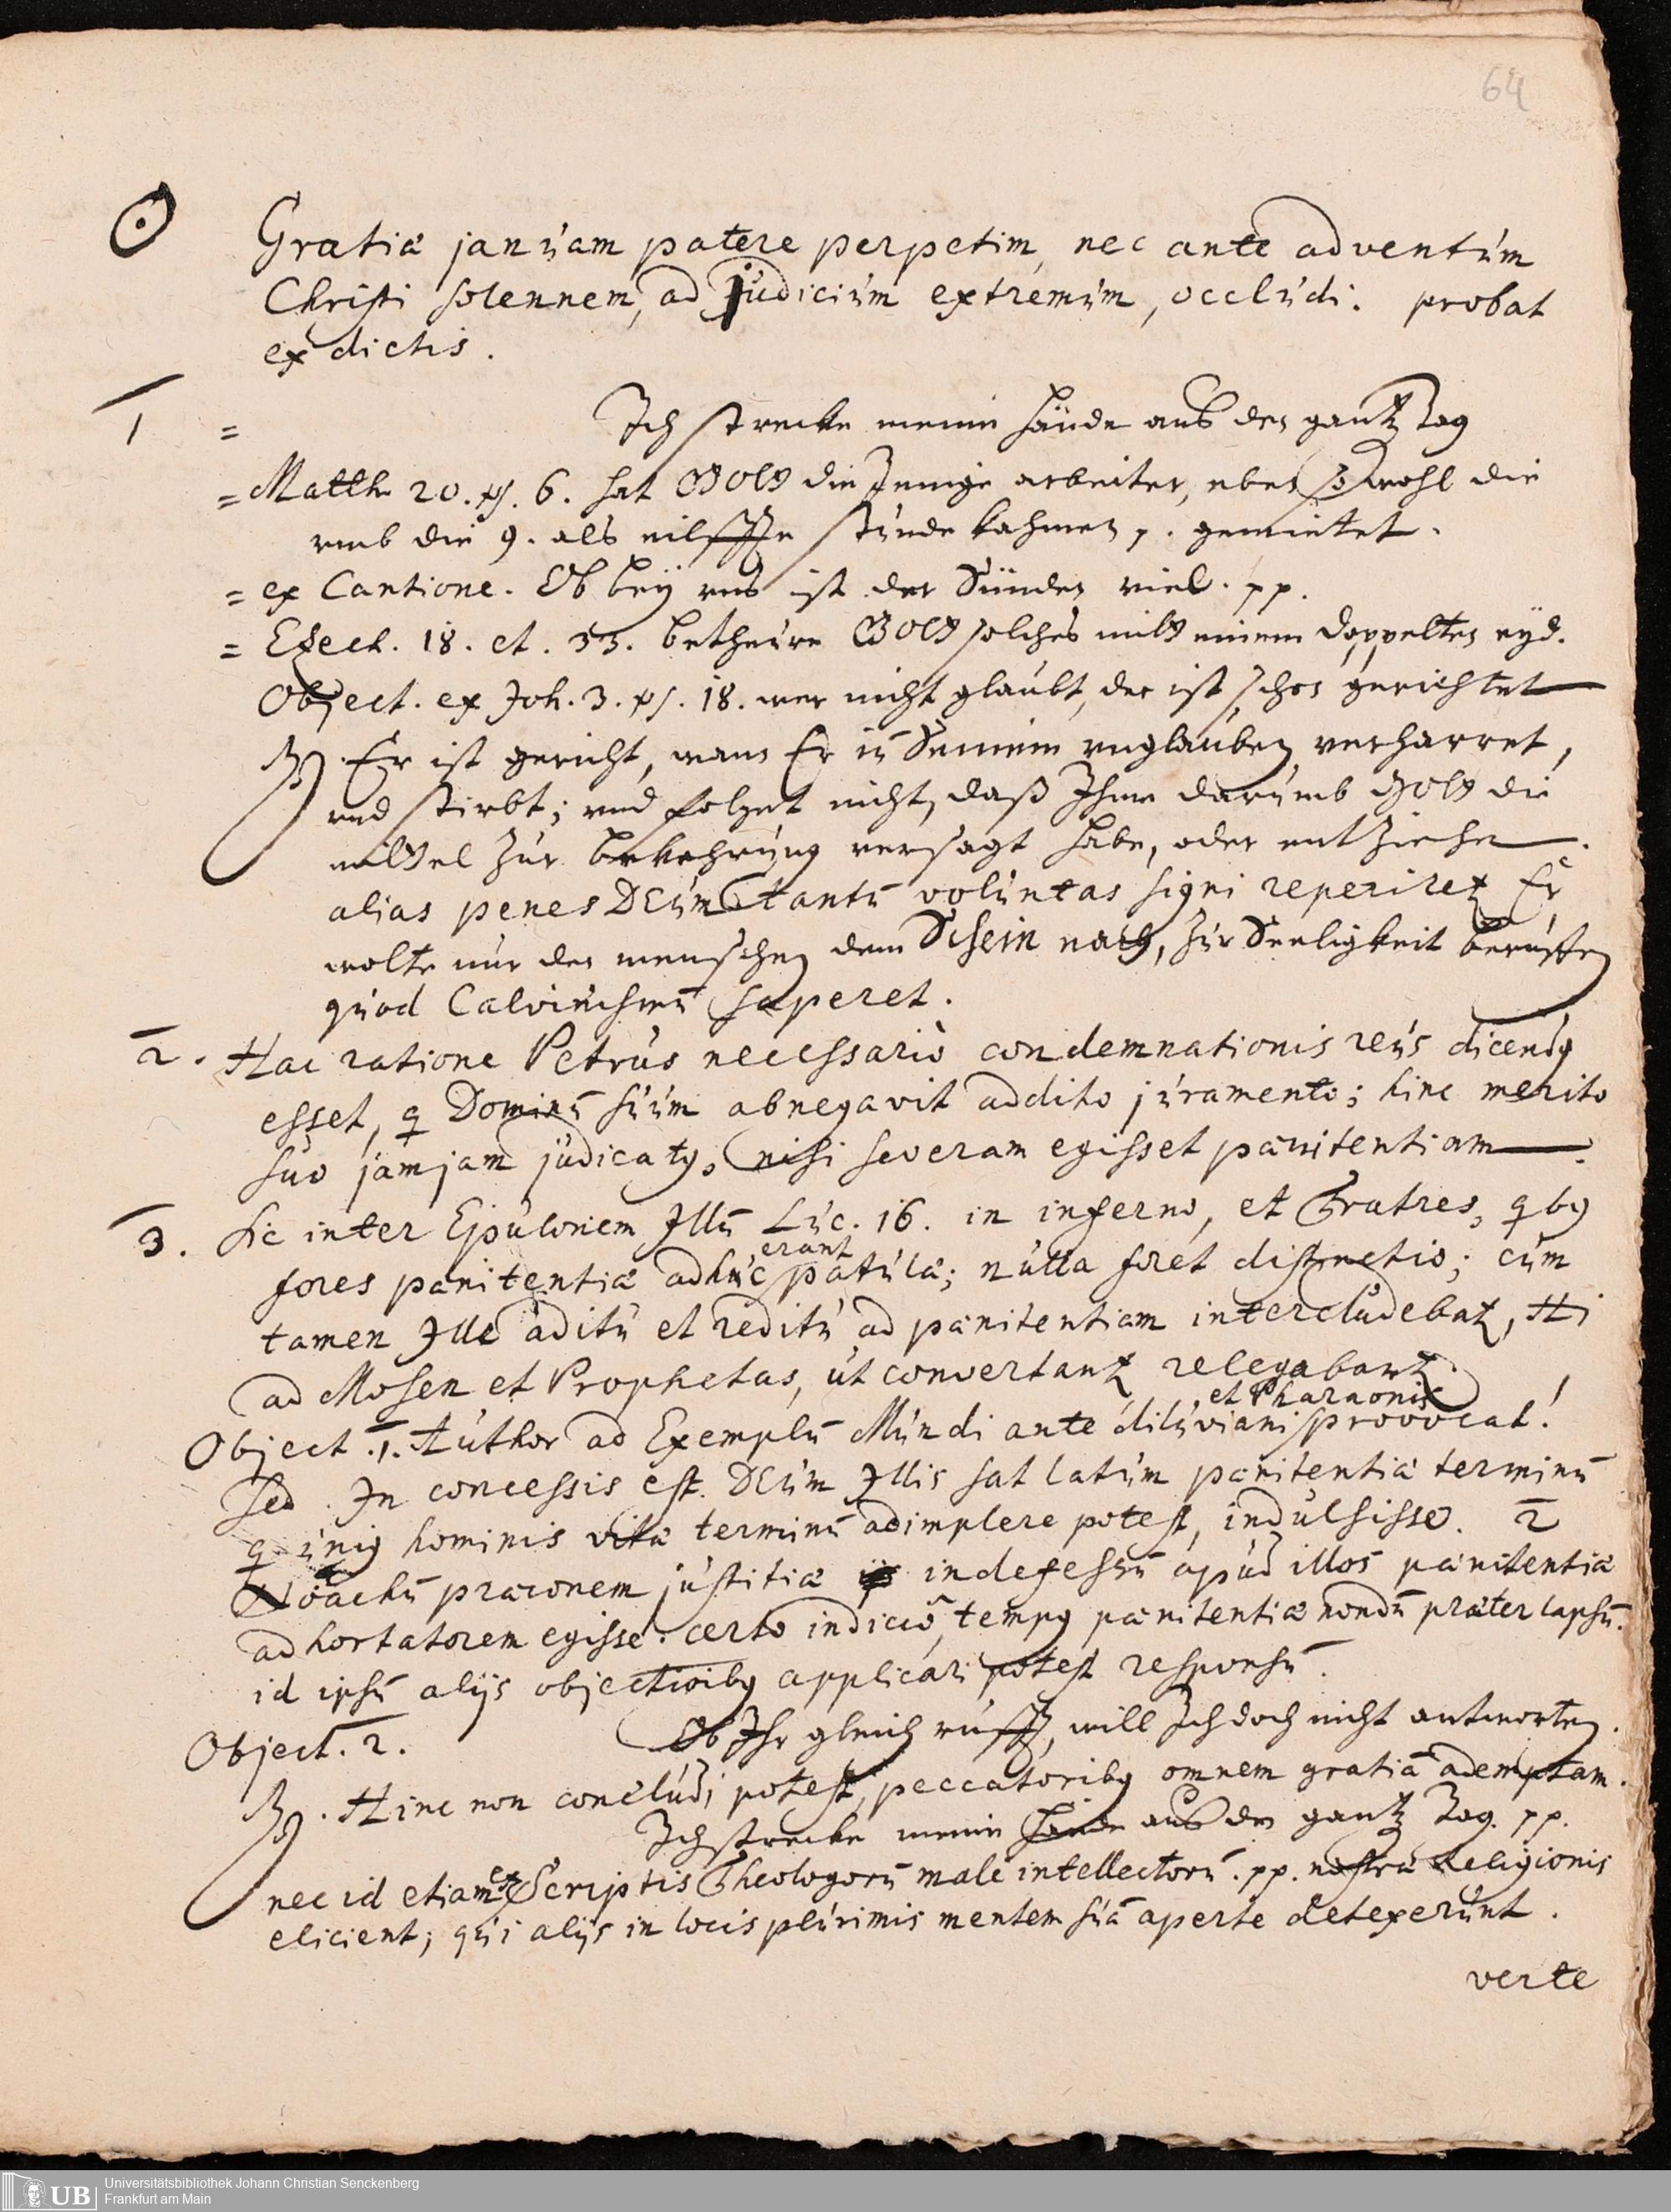 64
Gratiæ januam patere perpetim, nec ante adventum
Christi solennem, ad judicium extremum, occludi. probat
ex dictis.
1 = Ich strecke meine hände auß den gantz Tag
= Matth. 20. ℣. 6. hat GOtt die Jenige arbeiter, eben so wohl die
umb die 9. als eilffte stunde kahmen p. gemietet.
= ex Cantione. Ob beÿ uns ist der Sünden viel. pp.
= Ezech. 18. et. 33. betheure GOtt solches mitt einem doppelten eÿd.
Object. ex Joh. 3. ℣. 18. wer nicht glaubt, der ist schon gerichtet
℟. Er ist gericht, wann Er in Seinem unglauben verharret,
und stirbt; und folget nicht, daß Ihme darumb GOtt die
mittel zur bekehrung versagt habe, oder entziehe.
alias penes DEum tantū voluntas signi reperiret. Er
wolte nur den menschen dem Schein nach, zur Seeligkeit beruffen
quod Calvinismū saperet.
2. Hac ratione Petrus necessariò condemnationis reus dicendꝰ
esset, q Dominū suum abnegavit addito juramento; hinc merito
suo jamjam judicatꝰ, nisi severam egisset pænitentiam.
3. Sic inter Epulonem Illū Luc. 16. in inferno, et Fratres, qbꝰ
fores pænitentiæ adhuc erant patulæ; nulla foret distinctio; cùm
tamen Ille aditū et reditū ad pænitentiam intercludebat, Hi
ad Mosen et Prophetas, ut convertant relegabant.
Object. 1. Author ad Exemplū Mundi ante diluviani et Pharaonis provocat!
Sed. In concessis est. DEum Illis sat latum pænitentiæ terminū
q uniꝰ hominis vitæ terminū adimplere potest, indulsisse. 2
Noachū præconem justitiæ indefessū apud illos pænitentiæ
adhortatorem egisse. certo indicio, tempꝰ pænitentiæ nondū præterlapsū.
id ipsū alijs objectionibꝰ applicari potest responsū.
Object. 2. Ob Ihr gleich rufft, will Ich doch nicht antworten.
℟. Hinc non concludi potest, peccatoribꝰ omnem gratiā ademptam.
Ich strecke meine Hände auß den gantz Tag. pp.
nec id etiam ex Scriptis Theologorū malè intellectorū. pp. nostræ Religionis
elicient; qui alijs in locis plurimis mentem suā aperte detexerunt.
verte
UB Universitätsbibliothek Johann Christian Senckenberg
Frankfurt am Main